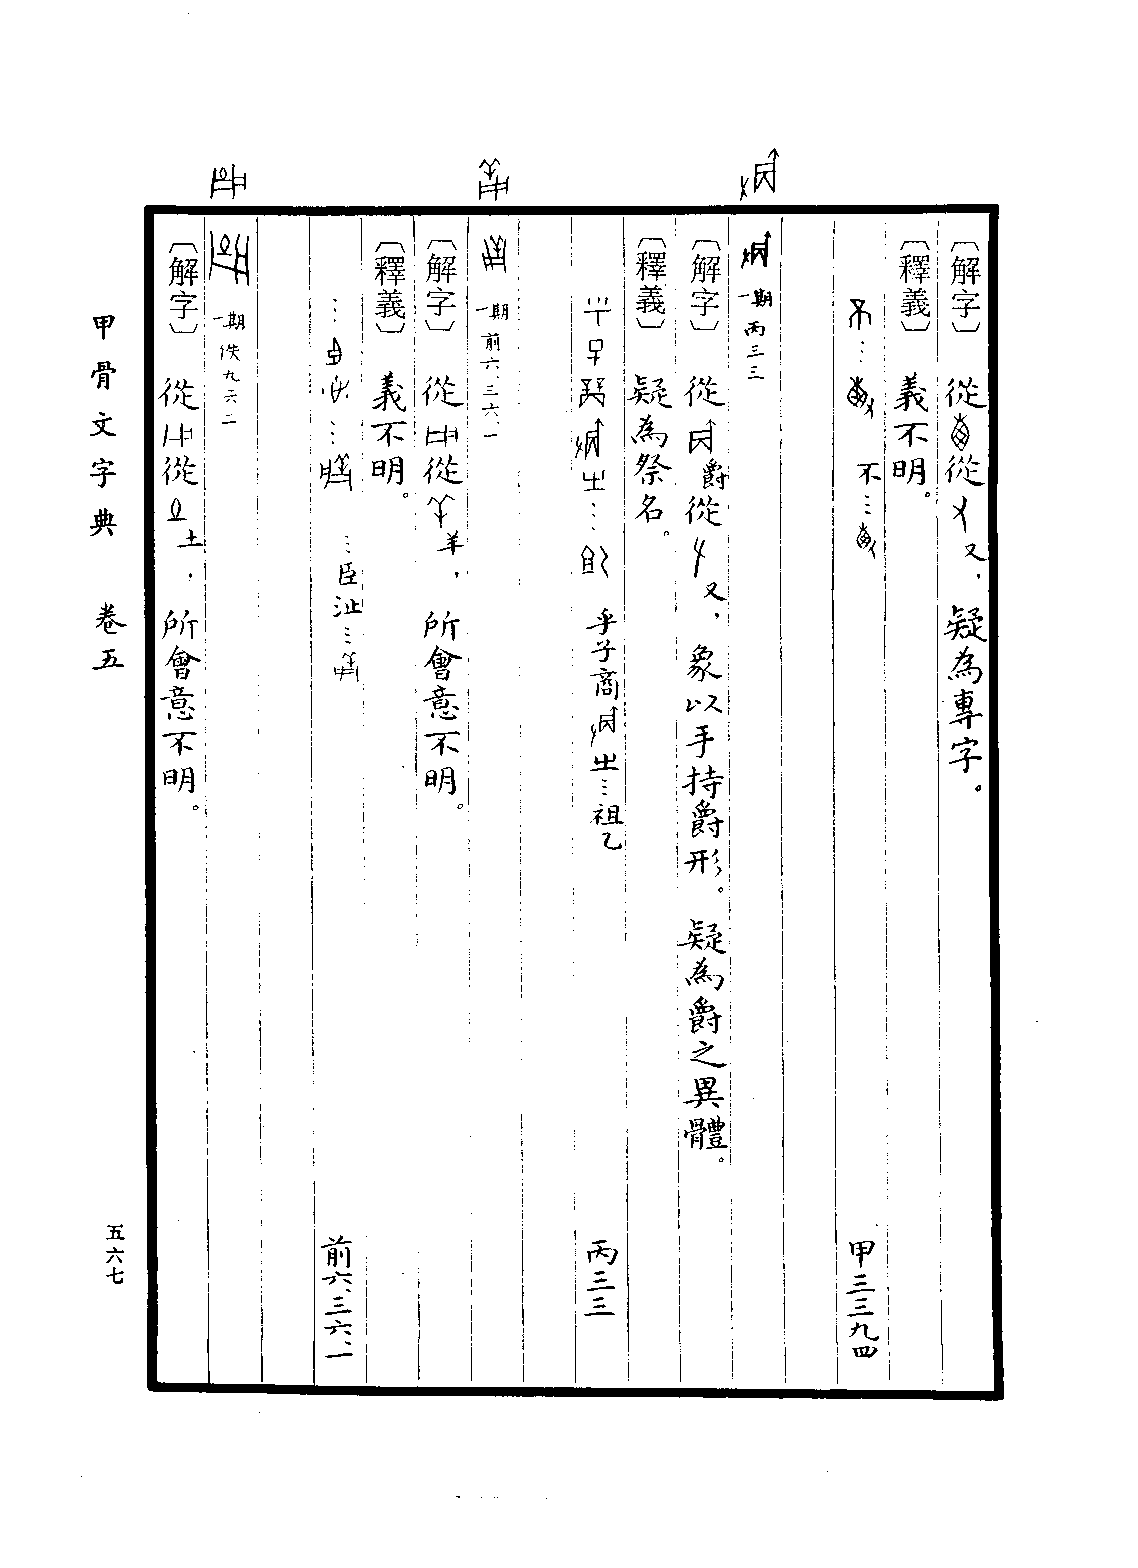 〔解字〕 從從又，疑為專字。
〔釋義〕 義不明。
不…
不…
甲三三九四
一期 丙三三
〔解字〕 從爵從又，象以手持爵形。疑為爵之異體。
〔釋義〕 疑為祭名。
乎子商㞢…祖乙
丙三三
一期 前六.三六.一
〔解字〕 從從羊，所會意不明。
〔釋義〕 義不明。
…臣沚…
前六.三六.一
一期 佚九六二
〔解字〕 從從土，所會意不明。
甲骨文字典 卷五
五六七